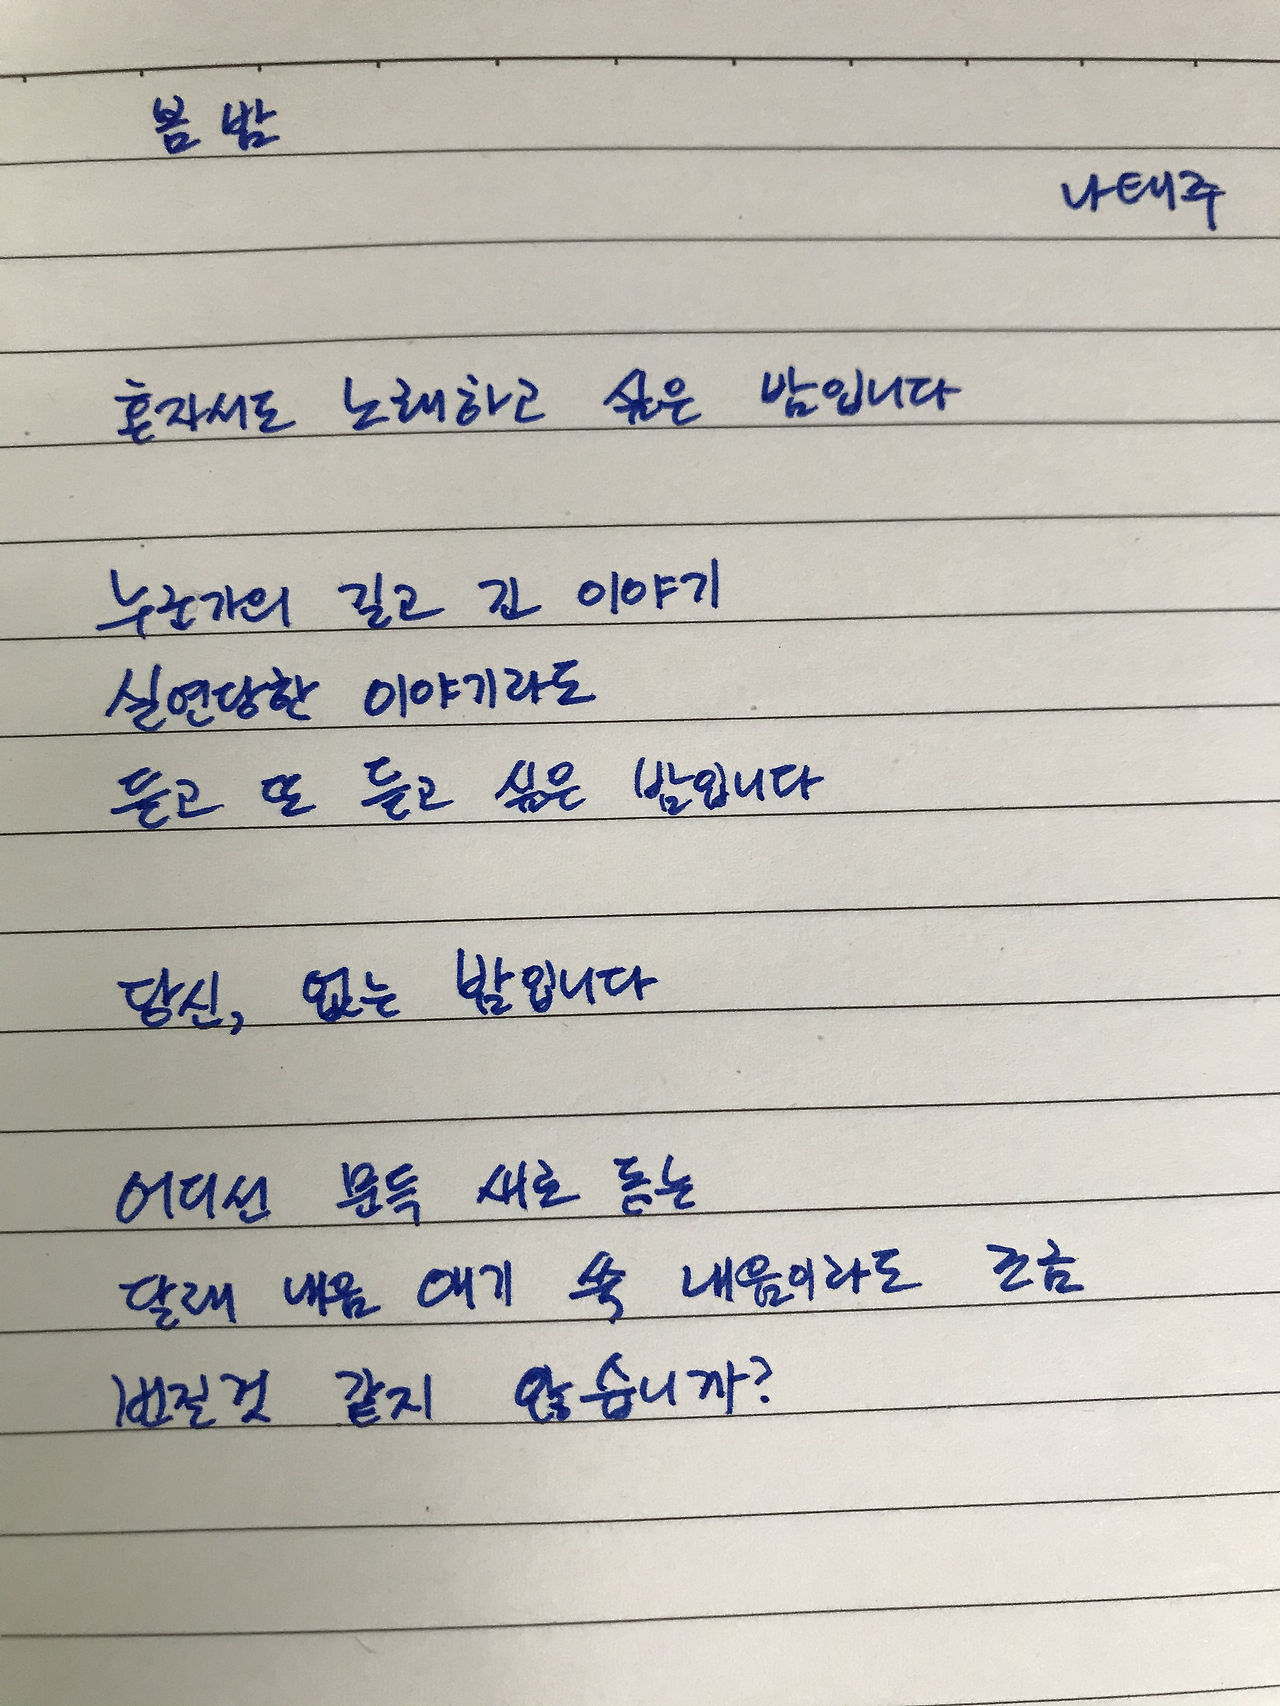 봄 밤
나태주
혼자서도 노래하고 싶은 밤입니다
누군가의 길고 긴 이야기
실연당한 이야기라도
듣고 또 듣고 싶은 밤입니다
당신, 없는 밤입니다
어디선 문득 새로 돋는
달래 내음 애기 쑥 내음이라도 조금
번질것 같지 않습니까?